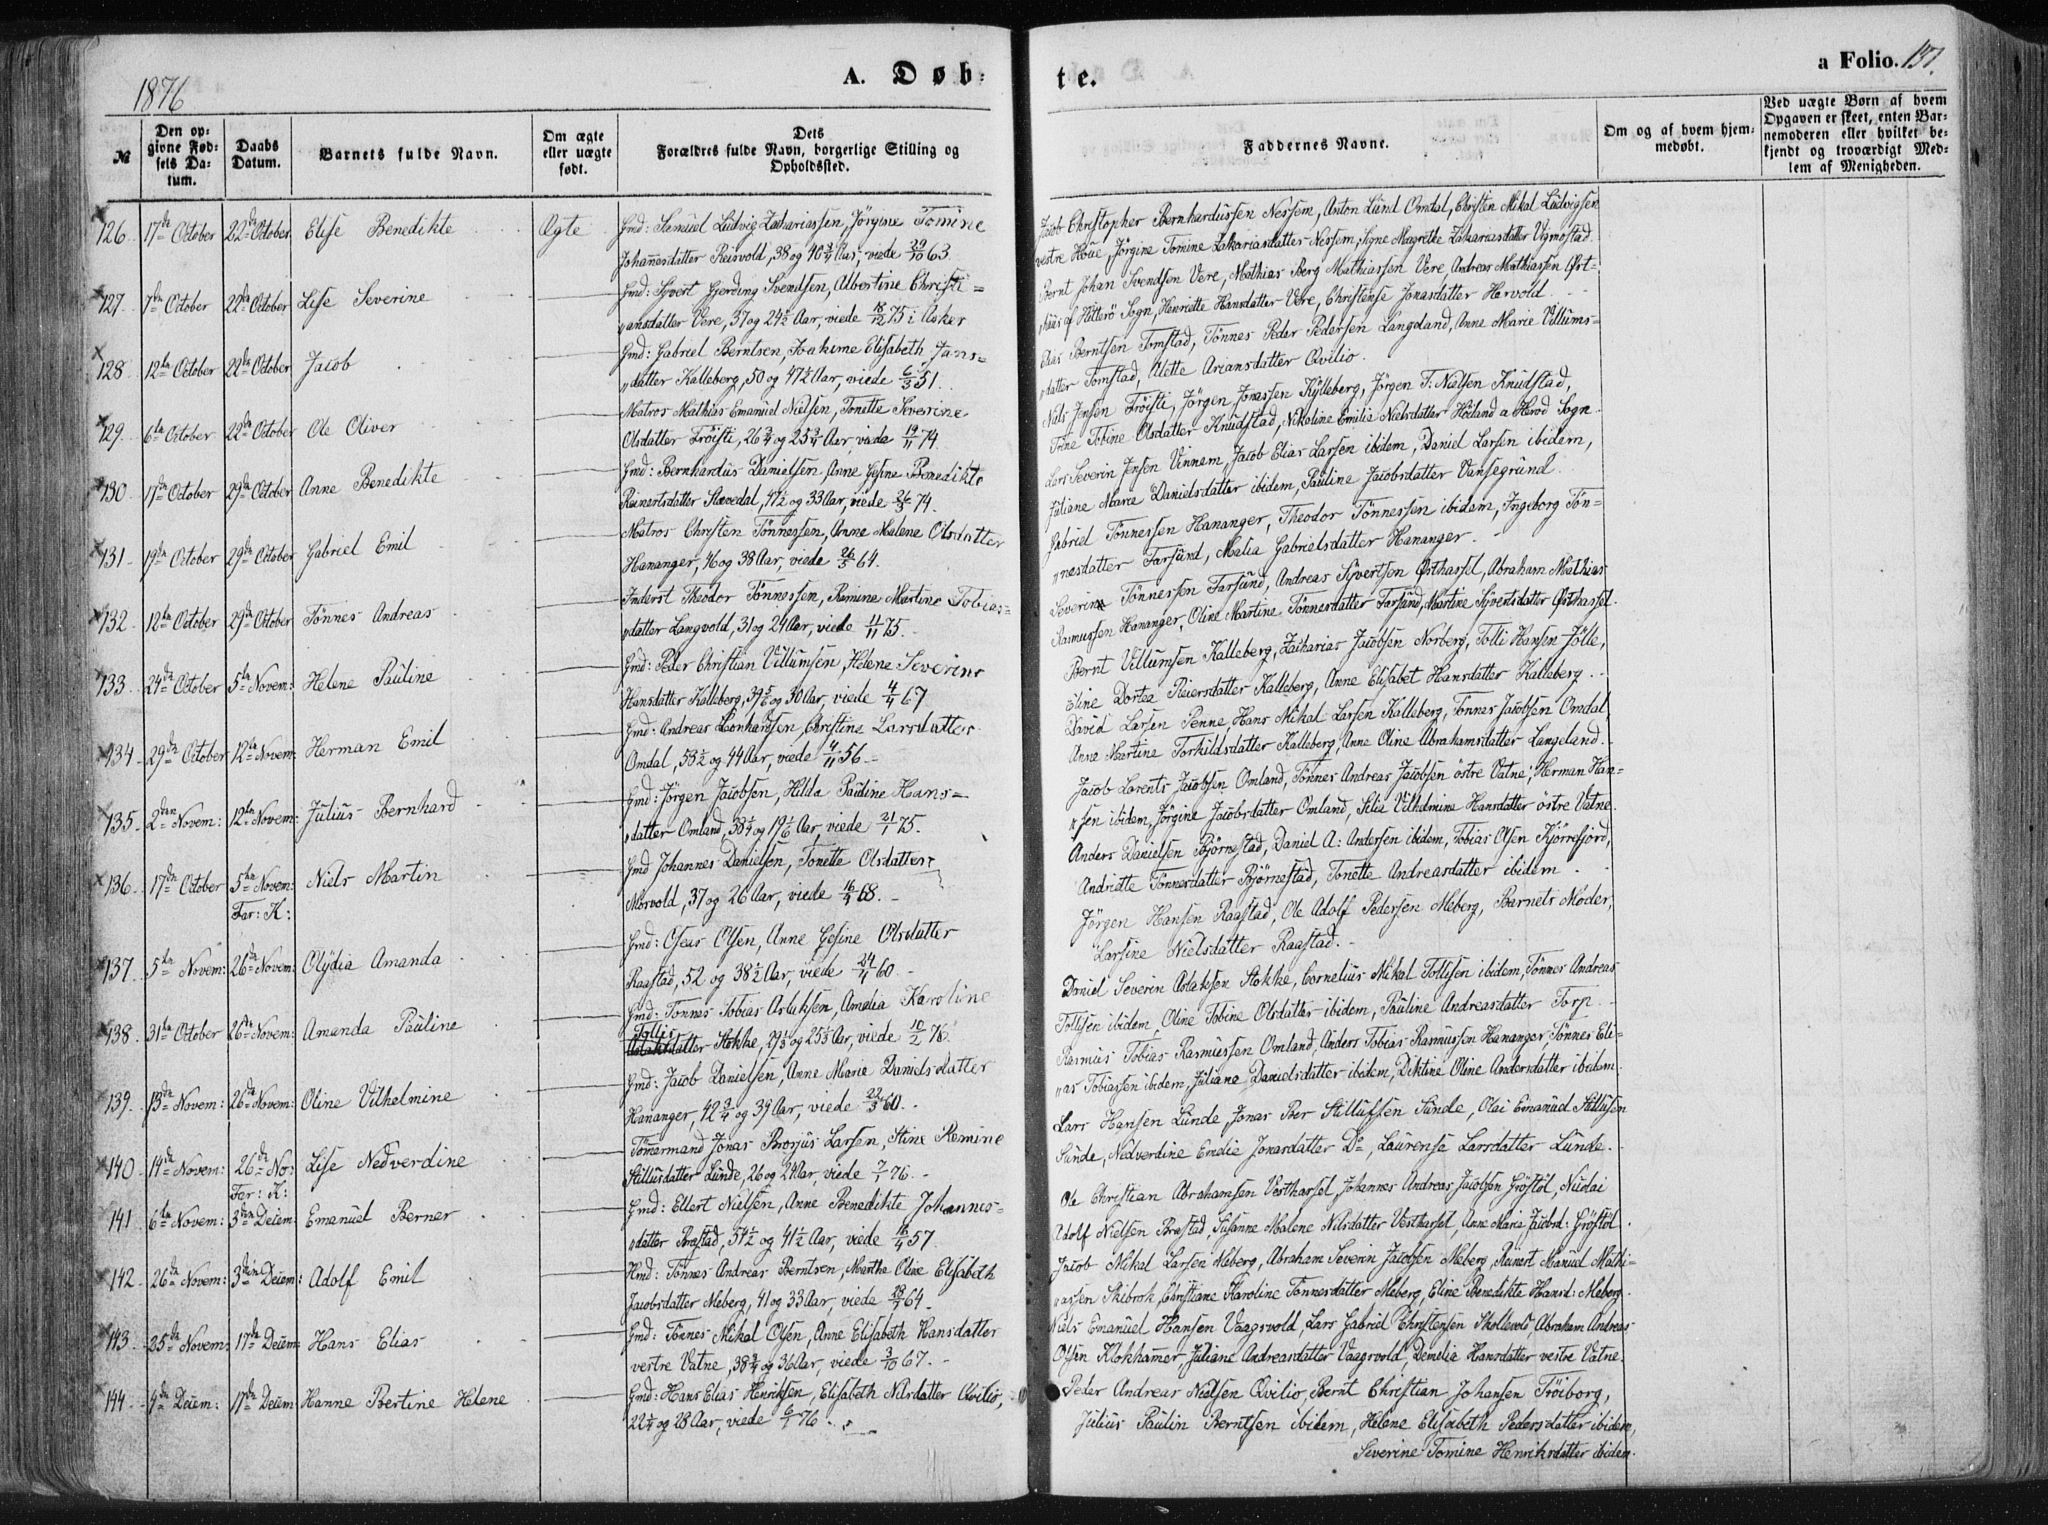 1876
A. Døb-
te.
a Folio. 137.
№
Den op-
givne Fød-
sels Da-
tum.
Daabs
Datum.
Barnets fulde Navn.
Om ægte
eller uægte
født.
Dets
Forældres fulde Navn, borgerlige Stilling og
Opholdssted.
Faddernes Navne.
Om og af hvem hjem-
medøbt.
Ved uægte Børn af hvem
Opgaven er skeet, enten Bar-
nemoderen eller hvilket be-
kjendt og troværdigt Med-
lem af Menigheden.
126. 17de October 22de October Elise Benedikte Ægte Gmd: Samuel Ludvig Zachariassen, Jörgine Tomine
Johannesdatter Reisvold, 38 og 40 3/4 Aar, viede 29/10 63.
Jacob Christopher Bernhardussen Nessem, Anton Lund Omdal, Christen Mikal Ludvigsen
vestre Houe, Jörgine Tomine Zakariasdatter Nessem, Signe Magrethe Zakariasdatter Vigmostad
127. 7de October 22de October Lise Severine Gmd: Syvert Gjerding Svendsen, Albertine Christi=
"ansdatter Vere, 37 og 24 1/2 Aar, viede 18/12 75 i Asker
Bernt Johan Svendsen Vere, Mathias Berg Mathiassen Vere, Andreas Mathiassen Øst-
"huus af Hitterö Sogn, Henriette Hansdatter Vere, Christense Jonasdatter Hervold
128 12te October 22de October Jacob Gmd: Gabriel Berntsen, Joakime Elisabeth Jans=
"datter Kalleberg, 50 og 47 1/2 Aar, viede 6/3 51.
Elias Berntsen Tomstad, Tönnes Peder Pedersen Langeland, Anne Marie Villums-
"datter Tomstad, Alette Ariansdatter Qvilio.
129. 6te October 22de October Ole Oliver Matros Mathias Emanuel Nielsen, Tonette Severine
Olsdatter Fröisti, 26 3/4 og 25 3/4 Aar, viede 19/11 74.
Niels Jensen Fröisti, Jörgen Jonassen Kylleberg, Jörgen T: Nielsen Knudstad,
Trine Tobine Olsdatter Knudstad, Nikoline Emilie Nielsdatter Höiland a Herod Sogn
130 17de October 29de October Anne Benedikte Gmd: Bernhardus Danielsen, Anne Gesine Benedikte
Reinertsdatter Stavedal, 47 1/2 og 33 Aar, viede 26/3 74.
Lars Severin Jensen Vinnem, Jacob Elias Larsen ibidem, Daniel Larsen ibidem,
Juliane Marie Danielsdatter ibidem, Pauline Jacobsdatter Vansegrund.
131 19de October 29de October Gabriel Emil Matros Christen Tönnessen, Anne Malene Olsdatter
Hananger, 46 og 38 Aar, viede 26/5 64.
Gabriel Tönnessen Hananger, Theodor Tönnessen ibidem, Ingeborg Tön=
"nesdatter Farsund, Malia Gabrielsdatter Hananger.
132 12te October 29de October Tönnes Andreas Inderst Theodor Tönnessen, Remine Martine Tobias=
"datter Langvold, 31 og 24 Aar, viede 11/11 75.
Severin Tönnessen Farsund, Andreas Syvertsen Østhassel, Abraham Mathias
Rasmussen Hananger, Oline Martine Tönnesdatter Farsund, Martine Syvertsdatter Østhassel.
133 24de October 5te Novem: Helene Pauline Gmd: Peder Christian Villumsen, Helene Severine
Hansdatter Kalleberg, 39 5/6 og 30 Aar, viede 4/4 67
Bernt Villumsen Kalleberg, Zacharias Jacobsen Norberg, Tolli Hansen Jölle,
Eline Dortea Reiersdatter Kalleberg, Anne Elisabet Hansdatter Kalleberg.
134 29de October 12te Novem: Herman Emil Gmd: Andreas Leonhardsen, Christine Larsdatter
Omdal, 53 1/2 og 44 Aar, viede 4/11 56.
David Larsen Penne, Hans Mikal Larsen Kalleberg, Tönnes Jacobsen Omdal,
Anna Martine Torkildsdatter Kalleberg, Anne Oline Abrahamsdatter Langeland.
135 2den Novem: 12te Novem: Julius Bernhard Gmd: Jörgen Jacobsen, Hilda Pauline Hans=
"datter Omland, 38 1/4 og 19 1/6 Aar, viede 21/1 75.
Jacob Lorents Jacobsen Omland, Tönnes Andreas Jacobsen östre Vatne, Herman Han-
"sen ibidem, Jörgine Jacobsdatter Omland, Selia Vilhelmine Hansdatter östre Vatne.
136 17de October 5te Novem: Niels Martin Gmd Johannes Danielsen, Tonette Olsdatter
Far: K: Morvold, 37 og 26 Aar, viede 16/4 68.
Anders Danielsen Björnestad, Daniel A: Andersen ibidem, Tobias Olsen Kjörrefjord,
Andriette Tönnesdatter Björnestad, Tonette Andreasdatter ibidem.
137. 5te Novem: 26de Novem: Olydia Amanda Gmd: Oseas Olsen, Anne Gesine Olsdatter
Raastad, 52 og 38 1/2 Aar, viede 24/4 60.
Jörgen Hansen Raastad, Ole Adolf Pedersen Meberg, Barnets Moder,
Larsine Nielsdatter Raastad.
138 31te October 26de Novem: Amanda Pauline Gmd: Tönnes Tobias Aslaksen, Amalia Karoline
Tollis
datter Stokke, 27 1/3 og 25 1/3 Aar, viede 10/2 76.
Daniel Severin Aslaksen Stokke, Cornelius Mikal Tollisen ibidem, Tönnes Andreas
Tollisen ibidem, Oline Tobine Olsdatter ibidem, Pauline Andreasdatter Torp.
139. 13de Novem: 26de Novem: Oline Vilhelmine Gmd: Jacob Danielsen, Anne Marie Danielsdatter
Hananger, 42 3/4 og 39 Aar, viede 22/3 60.
Rasmus Tobias Rasmussen Omland, Anders Tobias Rasmussen Hananger, Tönnes Eli-
"as Tobiassen ibidem, Juliane Danielsdatter ibidem, Diktine Oline Andersdatter ibidem.
140 14de Novem: 26de No: Lise Nedverdine Tömmermand Jonas Brorjus Larsen, Stine Remine
Far: K: Stillufsdatter Lunde, 26 og 24 Aar, viede 7/1 76.
Lars Hansen Lunde, Jonas Ber Stillufsen Sunde, Olai Emanuel Stillufsen
Sunde, Nedverdine Emelie Jonasdatter Do, Laurense Larsdatter Lunde.
141 6te Novem: 3die Decem: Emanuel Berner Gmd: Ellert Nielsen, Anne Benedikte Johannes=
"datter Brastad, 54 1/2 og 41 1/2 Aar, viede 16/4 57.
Ole Christian Abrahamsen Vesthassel, Johannes Andreas Jacobsen Gröstöl, Nicolai
Adolf Nielsen Brastad, Susanne Malene Nilsdatter Vesthassel, Anne Maria Jacobsd: Gröstöl.
142 26de Novem: 3die Decem: Adolf Emil Hmd: Tönnes Andreas Berntsen, Marthe Oline Elisabeth
Jacobsdatter Meberg, 41 og 33 Aar, viede 28/7 64.
Jacob Mikal Larsen Meberg, Abraham Severin Jacobsen Meberg, Reinert Manuel Mathi-
"assen Skibrok, Christiane Karoline Tönnesdatter Meberg, Eline Benedikte Hansd: Meberg
143 25de Novem: 17de Decem: Hans Elias Gmd: Tönnes Mikal Olsen, Anne Elisabeth Hansdatter
vestre Vatne, 38 3/4 og 36 Aar, viede 3/10 67.
Niels Emanuel Hansen Vaagsvold, Lars Gabriel Christensen Skollevold, Abraham Andreas
Olsen Klokhamer, Juliane Andreasdatter Vaagsvold, Demelia Hansdatter vestre Vatne.
144 9de Decem: 17de Decem Hanne Bertine Helene Gmd: Hans Elias Henriksen, Elisabeth Nilsdatter Qvilio,
22 1/4 og 28 Aar, viede 6/1 76.
Peder Andreas Nielsen Qvilio, Bernt Christian Johansen Tröiborg,
Julius Paulin Berntsen ibidem, Helene Elisabeth Pedersdatter ibidem,
Severine Tomine Henriksdatter ibidem.